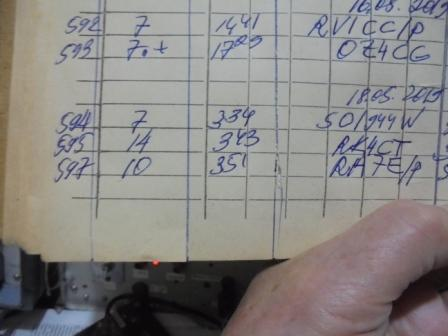 16.08.2015
592 7 1441 RV1CC/P
593 7.+ 1729 OZ4CG
18.05.2015
594 7 334 SO/944W
595 14 343 RK4CT
597 10 351 RA7E/P